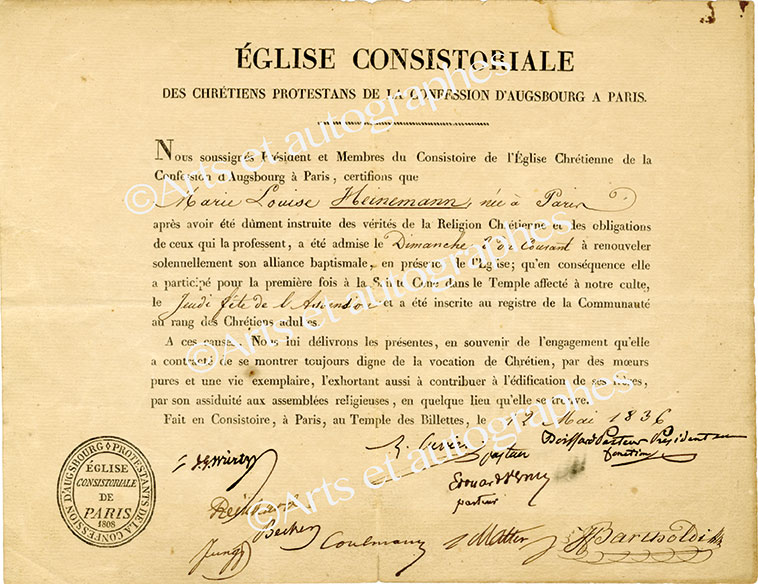 ÉGLISE CONSISTORIALE
DES CHRÉTIENS PROTESTANS DE LA CONFESSION D'AUGSBOURG A PARIS.
Nous soussignés Président et Membres du Consistoire de l'Église Chrétienne de la
Confession d'Augsbourg à Paris, certifions que
Marie Louise Heinemann, née à Paris
après avoir été dûment instruite des vérités de la Religion Chrétienne et des obligations
de ceux qui la professent, a été admise le Dimanche du Courant à renouveler
solennellement son alliance baptismale, en présence de l'Église; qu'en conséquence elle
a participé pour la première fois à la Sainte Cène dans le Temple affecté à notre culte,
le Jeudi fête de l'Ascension et a été inscrite au registre de la Communauté
au rang des Chrétiens adultes.
A ces causes, Nous lui délivrons les présentes, en souvenir de l'engagement qu'elle
a contracté de se montrer toujours digne de la vocation de Chrétien, par des mœurs
pures et une vie exemplaire, l'exhortant aussi à contribuer à l'édification de ses frères,
par son assiduité aux assemblées religieuses, en quelque lieu qu'elle se trouve.
Fait en Consistoire, à Paris, au Temple des Billettes, le 12 Mai 1836
Cuvier
pasteur
Boissard Pasteur Président en
fonctions
Edouard Verny
pasteur
Becker
Jung
Coulmann
Matter
Bartholdi
PROTESTANTS DE LA CONFESSION D'AUGSBOURG
ÉGLISE
CONSISTORIALE
DE
PARIS
1808
©Arts et autographes
©Arts et autographes
©Arts et autographes
©Arts et autographes